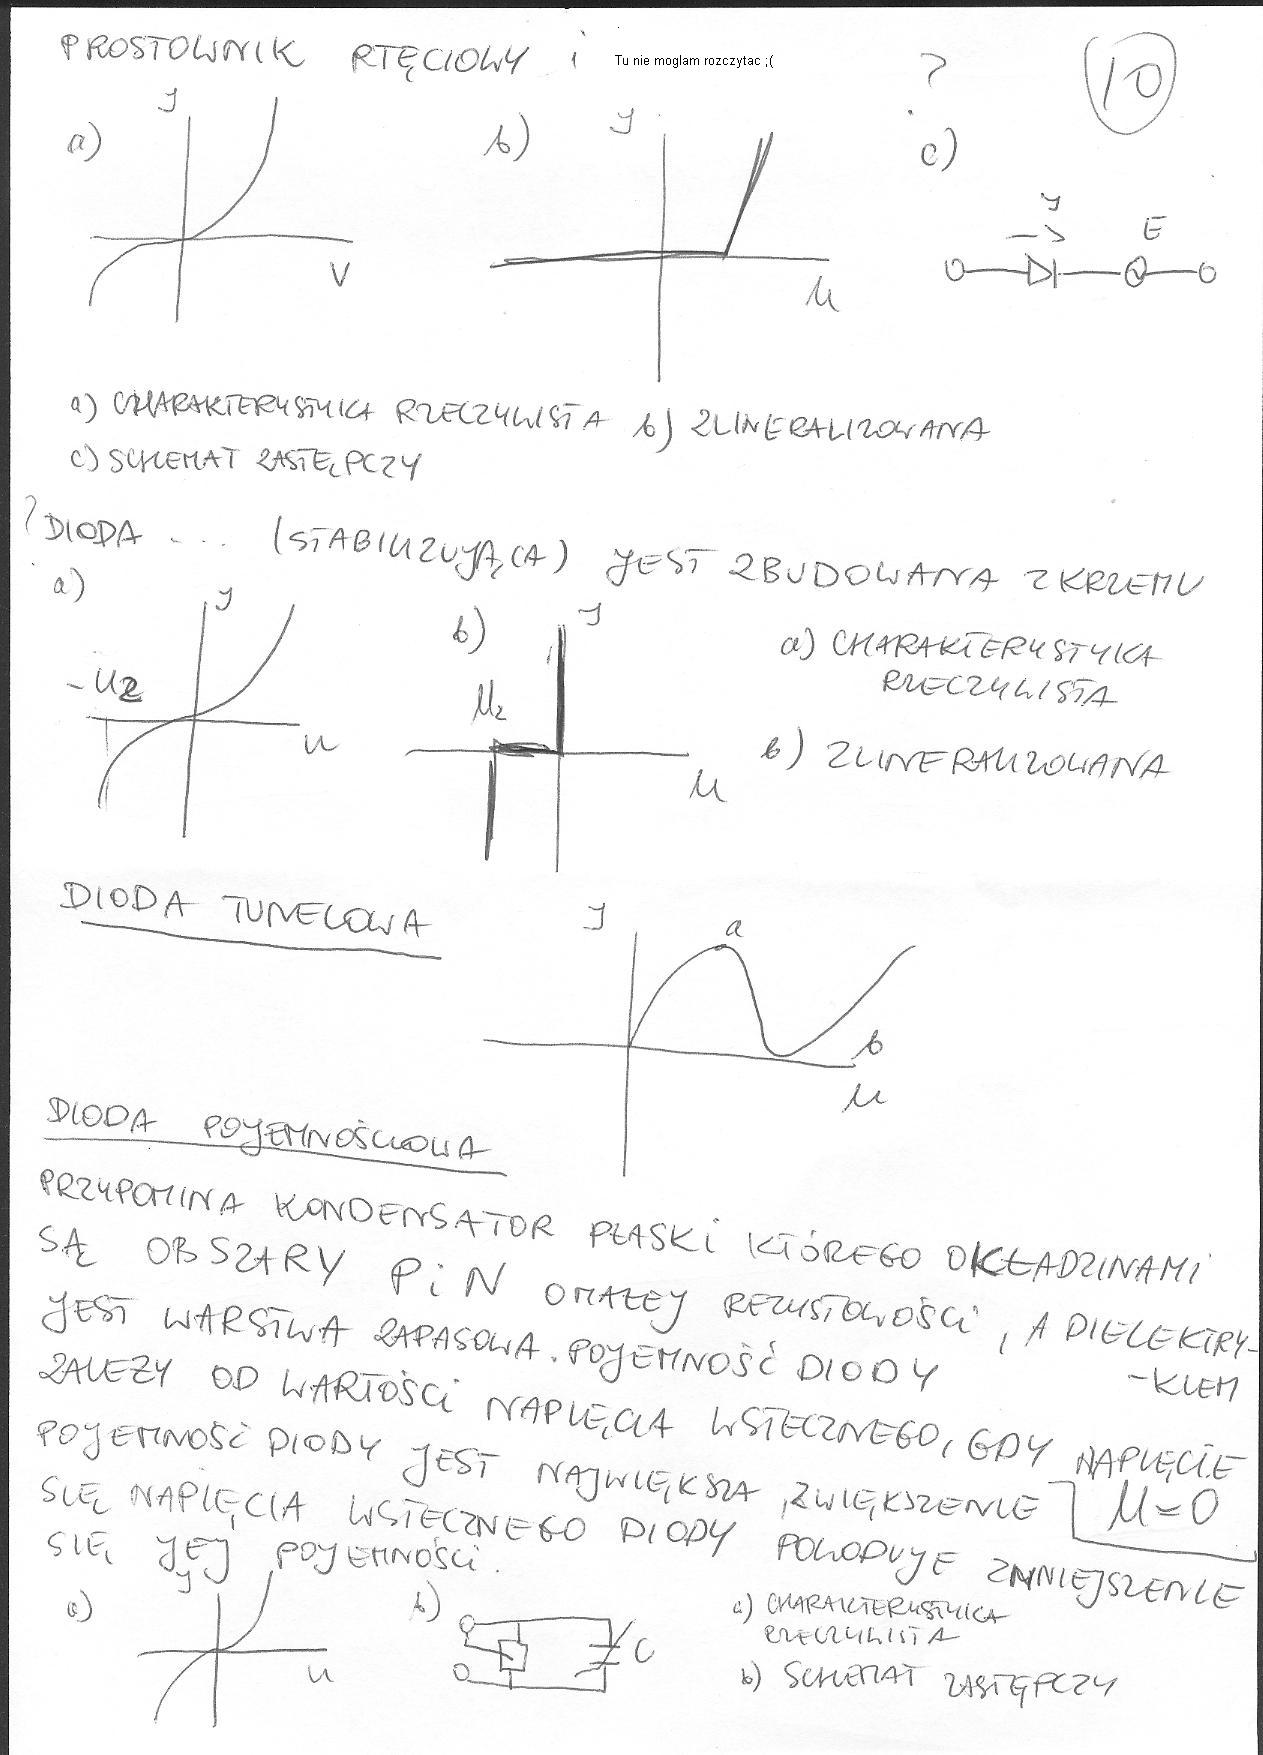 PROSTOWNIK RTĘCIOWY i Tu nie moglam rozczytac ;( ?
10
a) J V
b) J U
c) J E
a) CHARAKTERYSTYKA RZECZYWISTA b) ZLINERALIZOWANA
c) SCHEMAT ZASTĘPCZY
? DIODA ... (STABILIZUJĄCA) JEST ZBUDOWANA Z KRZEMU
a) J -UZ U
b) J UZ U
a) CHARAKTERYSTYKA
RZECZYWISTA
b) ZLINERALIZOWANA
DIODA TUNELOWA
J a b U
DIODA POJEMNOŚCIOWA
PRZYPOMINA KONDENSATOR PŁASKI KTÓREGO OKŁADZINAMI
SĄ OBSZARY P i N O MAŁEJ REZYSTOWOŚCI, A DIELEKTRY-
-KIEM
JEST WARSTWA ZAPASOWA. POJEMNOŚĆ DIODY
ZALEŻY OD WARTOŚCI NAPIĘCIA WSTECZNEGO, GDY NAPIĘCIE
U=0
POJEMNOŚĆ DIODY JEST NAJWIĘKSZA, ZWIĘKSZENIE
SIĘ NAPIĘCIA WSTECZNEGO DIODY POWODUJE ZMNIEJSZENIE
SIĘ JEJ POJEMNOŚCI.
a) J U
b) C
a) CHARAKTERYSTYKA
RZECZYWISTA
b) SCHEMAT ZASTĘPCZY